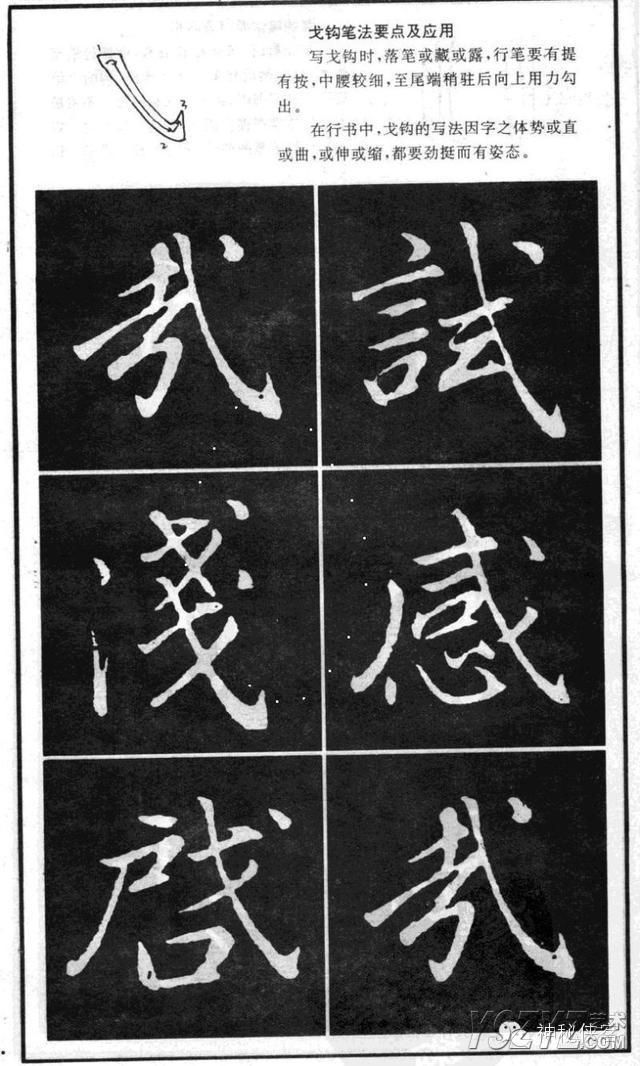 戈钩笔法要点及应用
写戈钩时，落笔或藏或露，行笔要有提
有按，中腰较细，至尾端稍驻后向上用力勾
出。
在行书中，戈钩的写法因字之体势或直
或曲，或伸或缩，都要劲挺而有姿态。
1
3
2
哉 試
淺 感
啓 哉
艺术
神秘侠
.COM